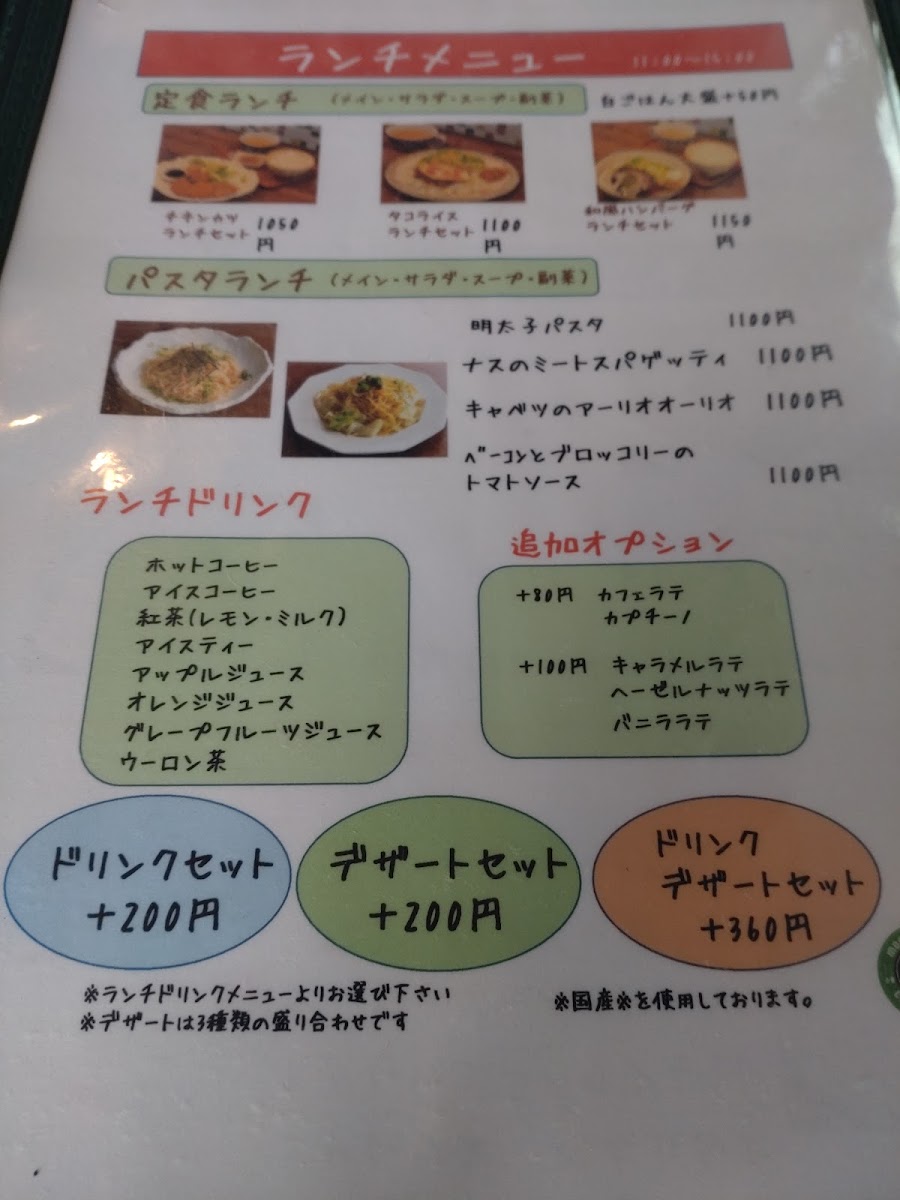 ランチメニュー
定食ランチ (メイン・サラダ・スープ・副菜) 白ごはん大盛+50円
チキンカツ
ランチセット 1050円
タコライス
ランチセット 1100円
和風ハンバーグ
ランチセット 1150円
パスタランチ (メイン・サラダ・スープ・副菜)
明太子パスタ 1100円
ナスのミートスパゲッティ 1100円
キャベツのアーリオオーリオ 1100円
ベーコンとブロッコリーの
トマトソース 1100円
ランチドリンク
ホットコーヒー
アイスコーヒー
紅茶(レモン・ミルク)
アイスティー
アップルジュース
オレンジジュース
グレープフルーツジュース
ウーロン茶
追加オプション
+80円 カフェラテ
カプチーノ
+100円 キャラメルラテ
ヘーゼルナッツラテ
バニララテ
ドリンクセット
+200円
デザートセット
+200円
ドリンク
デザートセット
+360円
※ランチドリンクメニューよりお選び下さい
※デザートは3種類の盛り合わせです
※国産米を使用しております。